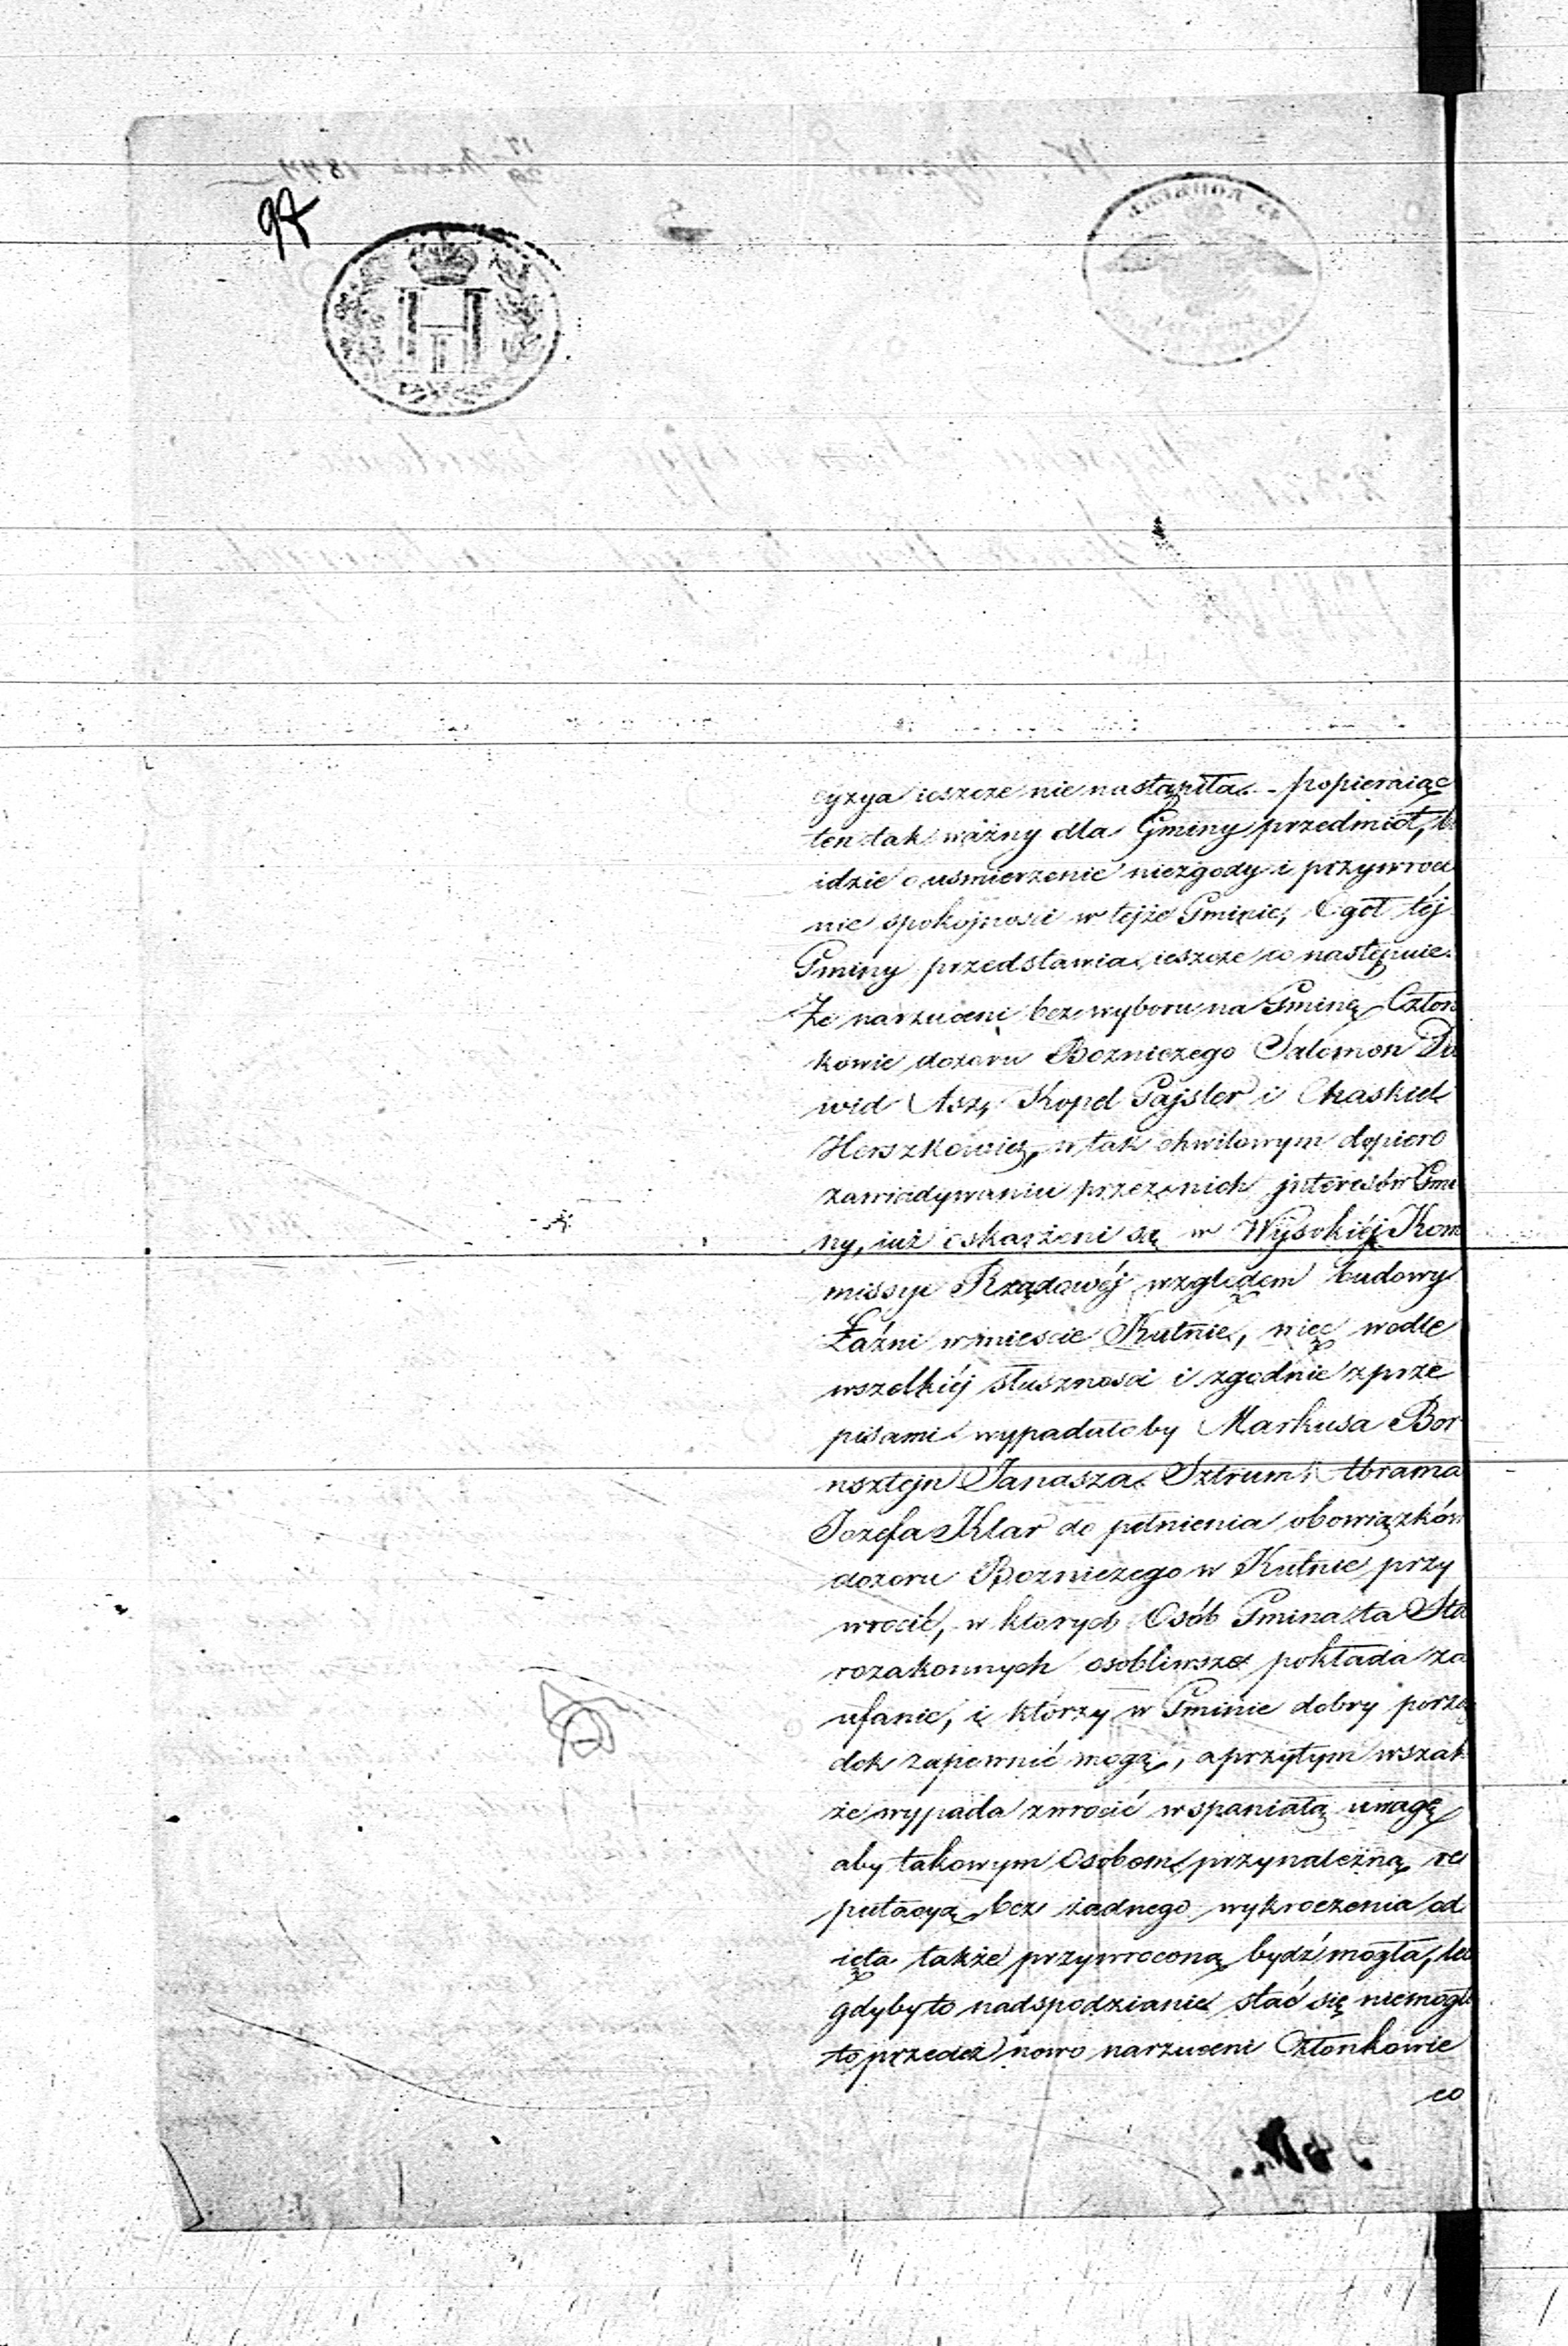 97
cyzya ieszcze nie nastąpiła. popieraiąc
ten tak ważny dla Gminy przedmiot, b
idzie o usmierzenie niezgody i przywroce
nie spokojnosci w tejże Gminie, Ogół téj
Gminy przedstawia ieszcze co następuie.
Że narzuceni bez wyboru na Gminę Człon
kowie dozoru Bozniczego Salomon Da
wid Asz, Kopel Gajsler i Chaskiel
Herszkowicz, w tak chwilowym dopiero
zawiadywaniu przez nich interesów Gmi
ny, iuż oskarżeni są w Wysokiéj Kom
missyi Rządowéj względem budowy
Łaźni w miescie Kutnie, więc wedle
wszelkiéj słusznosci i zgodnie z prze
pisami wypadałoby Markusa Bor
nsztejn Janasza Sztrum i Abrama
Jozefa Klar do pełnienia obowiązków
dozoru Bozniczego w Kutnie przy
wrocić, w ktorych Osób Gmina ta Sta
rozakonnych osobliwsze pokłada za
ufanie, i ktorzy w Gminie dobry porzą
dek zapewnić mogą, a przytym wszak
że wypada zwrocić wspaniałą uwagę
aby takowym Osobom przynależną re
putacyą bez żadnego wykroczenia od
ięta także przywroconą bydź mogła, lec
gdyby to nadspodzianie stać się niemogło
to przecież nowo narzuceni Członkowie
co